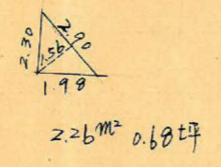 2.30
2.00
1.56
1.98
2.26m² 0.68坪